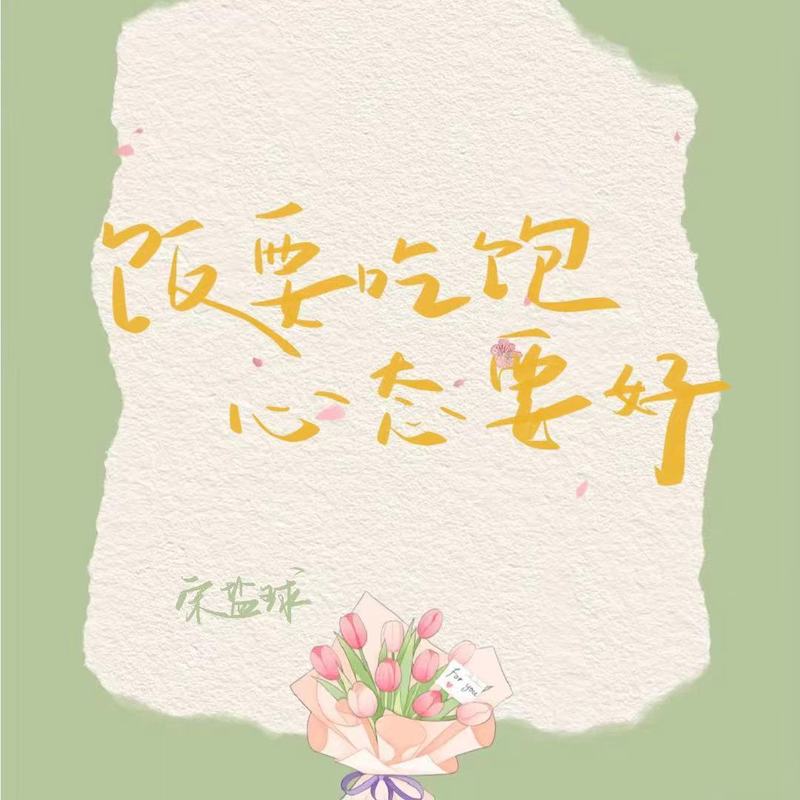 饭要吃饱
心态要好
宋盐球
for you